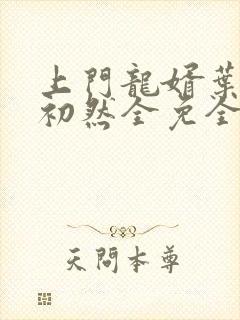 上門龍婿葉
初然全免全
天問本尊